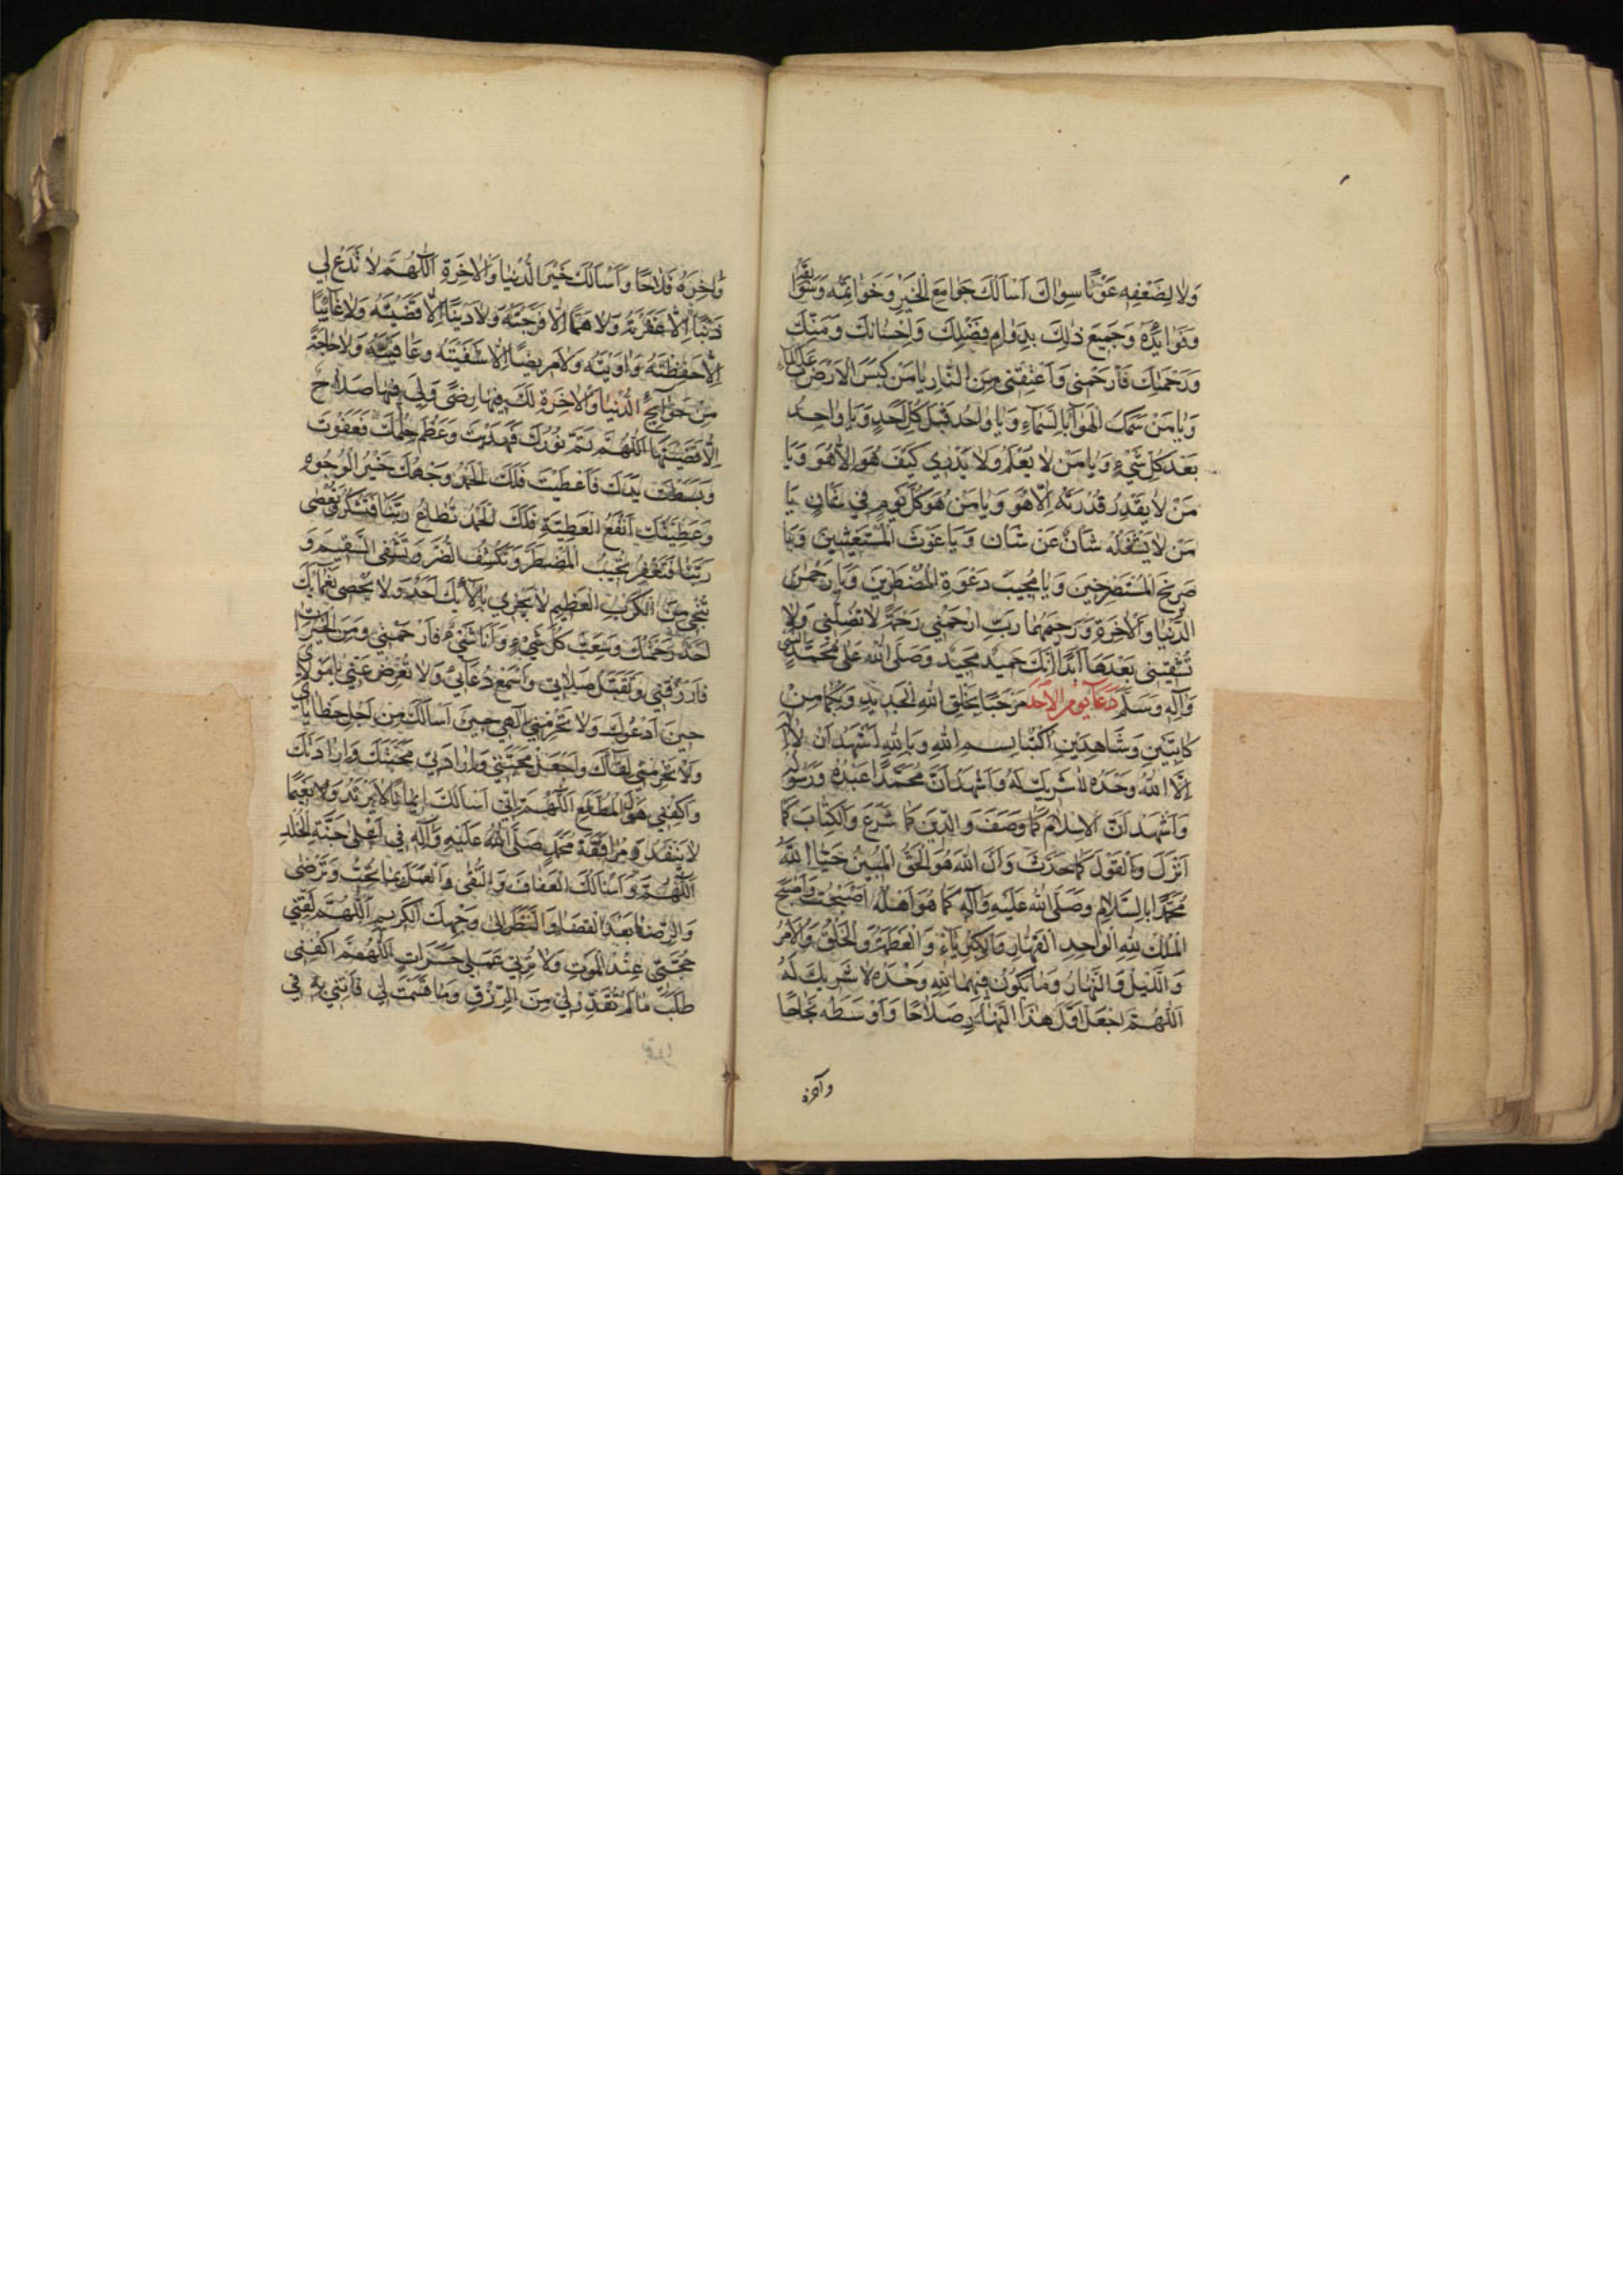 وَلا لِضَعْفِهِ عَوْنًا سِواكَ اَسْاَلُكَ جَوامِعَ الْخَيْرِ وَخَواتِمَهُ وَسَوابِقَهُ
وَفَوائِدَهُ وَجَميعَ ذلِكَ بِدَوامِ فَضْلِكَ وَاِحْسانِكَ وَمَنِّكَ
وَرَحْمَتِكَ فَارْحَمْنى وَاَعْتِقْنى مِنَ النّارِ يا مَنْ كَبَسَ الاَرْضَ عَلَى الماء
وَيا مَنْ سَمَكَ الْهَواءَ بِالسَّماءِ وَيا واحِدُ قَبْلَ كُلِّ اَحَدٍ وَيا واحِدُ
بَعْدَ كُلِّ شَيْءٍ وَيا مَنْ لا يَعْلَمُ وَلا يَدْرى كَيْفَ هُوَ اِلاّ هُوَ وَيا
مَنْ لا يَقْدِرُ قُدْرَتَهُ اِلاّ هُوَ وَيا مَنْ هُوَ كُلَّ يَوْمٍ فِي شَانٍ يا
مَنْ لا يَشْغَلُهُ شَانٌ عَنْ شَانٍ وَيا غَوْثَ الْمُسْتَغيثينَ وَيا
صَريخَ الْمُسْتَصْرِخينَ وَيا مُجيبَ دَعْوَةِ الْمُضْطَرّينَ وَيا رَحْمنَ
الدُّنْيا وَالاْخِرَةِ وَرَحيمَهُما رَبِّ ارْحَمْني رَحْمَةً لا تُضِلُّني وَلا
تُشْقيني بَعْدَها اَبَدًا اِنَّكَ حَميدٌ مَجيدٌ وَصَلَّى اللهُ عَلى مُحَمَّدٍ النَّبِيِّ
وَآلِهِ وَسَلَّمَ دُعاءُ يَوْمِ الاَحَدِ مَرْحَبًا بِخَلْقِ اللهِ الْجَديدِ وَبِكُما مِنْ
كاتِبَيْنِ وَشاهِدَيْنِ اُكْتُبا بِسْمِ اللهِ وَبِاللهِ اَشْهَدُ اَنْ لا اِلهَ
اِلاَّ اللهُ وَحْدَهُ لا شَريكَ لَهُ وَاَشْهَدُ اَنَّ مُحَمَّدًا عَبْدُهُ وَرَسُولُهُ
وَاَشْهَدُ اَنَّ الاِسْلامَ كَما وَصَفَ وَالدّينَ كَما شَرَعَ وَالْكِتابَ كَما
اَنْزَلَ وَالْقَوْلَ كَما حَدَّثَ وَاَنَّ اللهَ هُوَ الْحَقُّ الْمُبينُ حَيَّا اللهُ
مُحَمَّدًا بِالسَّلامِ وَصَلَّى اللهُ عَلَيْهِ وَآلِهِ كَما هُوَ اَهْلُهُ اَصْبَحْتُ وَاَصْبَحَ
الْمُلْكُ لِلّهِ الْواحِدِ الْقَهّارِ وَالْكِبْرِياءُ وَالْعَظَمَةُ وَالْخَلْقُ وَالاَمْرُ
وَاللَّيْلُ وَالنَّهارُ وَما يَكُونُ فيهِما لِلّهِ وَحْدَهُ لا شَريكَ لَهُ
اَللّهُمَّ اجْعَلْ اَوَّلَ هذَا النَّهارِ صَلاحًا وَاَوْسَطَهُ نَجاحًا
وآخره
وَآخِرَهُ فَلاحًا وَاَسْاَلُكَ خَيْرَ الدُّنْيا وَالاْخِرَةِ اَللّهُمَّ لا تَدَعْ لي
ذَنْبًا اِلاّ غَفَرْتَهُ وَلا هَمًّا اِلاّ فَرَّجْتَهُ وَلا دَيْنًا اِلاّ قَضَيْتَهُ وَلا غائِبًا
اِلاّ حَفِظْتَهُ وَاَوَيْتَهُ وَلا مَريضًا اِلاّ شَفَيْتَهُ وَعافَيْتَهُ وَلا حاجَةً
مِنْ حَوائِجِ الدُّنْيا وَالاْخِرَةِ لَكَ فيها رِضًى وَلِيَ فيها صَلاحٌ
اِلاّ قَضَيْتَها اَللّهُمَّ تَمَّ نُورُكَ فَهَدَيْتَ وَعَظُمَ حِلْمُكَ فَعَفَوْتَ
وَبَسَطْتَ يَدَكَ فَاَعْطَيْتَ فَلَكَ الْحَمْدُ وَجْهُكَ خَيْرُ الْوُجُوهِ
وَعَطِيَّتُكَ اَنْفَعُ الْعَطِيَّةِ فَلَكَ الْحَمْدُ تُطاعُ رَبَّنا فَتَشْكُرُ وَتُعْصى
رَبَّنا فَتَغْفِرُ تُجيبُ الْمُضْطَرَّ وَتَكْشِفُ الضُّرَّ وَتَشْفِى السَّقيمَ وَ
تُنْجي مِنَ الْكَرْبِ الْعَظيمِ لا يَجْزي بِآلائِكَ اَحَدٌ وَلا يُحْصى نَعْمائَكَ
اَحَدٌ رَحْمَتُكَ وَسِعَتْ كُلَّ شَيْءٍ وَاَنَا شَيْءٌ فَارْحَمْني وَمِنَ الْخَيْراتِ
فَارْزُقْني وَتَقَبَّلْ صَلاتي وَاسْمَعْ دُعائي وَلا تُعْرِضْ عَنّي يا مَوْلايَ
حينَ اَدْعُوكَ وَلا تَحْرِمْني اِلهي حينَ اَسْاَلُكَ مِنْ اَجْلِ خَطايايَ
وَلا تَحْرِمْني لِقائَكَ وَاجْعَلْ مَحَبَّتي وَاِرادَتي مَحَبَّتَكَ وَاِرادَتَكَ
وَاكْفِني هَوْلَ الْمُطَّلَعِ اَللّهُمَّ اِنّي اَسْاَلُكَ ايمانًا لا يَرْتَدُّ وَلا نَعيمًا
لا يَنْفَدُ وَمُرافَقَةَ مُحَمَّدٍ صَلَّى اللهُ عَلَيْهِ وَآلِهِ في اَعْلى جَنَّةِ الْخُلْدِ
اَللّهُمَّ وَاَسْاَلُكَ الْعَفافَ وَالتُّقى وَالْعَمَلَ بِما تُحِبُّ وَتَرْضى
وَالرِّضا بَعْدَ الْقَضاءِ وَالنَّظَرَ اِلى وَجْهِكَ الْكَريمِ اَللّهُمَّ لَقِّنّي
حُجَّتي عِنْدَ الْمَوْتِ وَلا تُرِني عَمَلي حَسَراتٍ اَللّهُمَّ اكْفِني
طَلَبَ ما لَمْ تُقَدِّرْ لي مِنَ الرِّزْقِ وَما قَسَمْتَ لي فَاْتِني بِهِ في